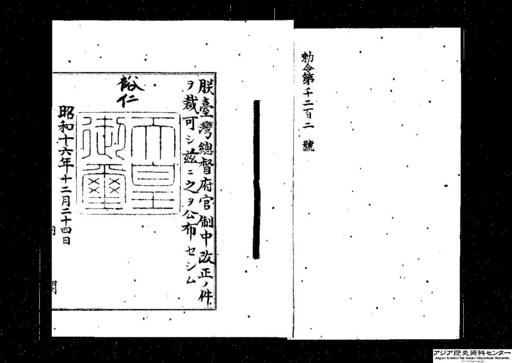 勅令第千二百二號
朕臺灣總督府官制中改正ノ件
ヲ裁可シ茲ニ之ヲ公布セシム
裕仁
天皇
御璽
昭和十六年十二月二十四日
内
閣
アジア歴史資料センター
Japan Center for Asian Historical Records